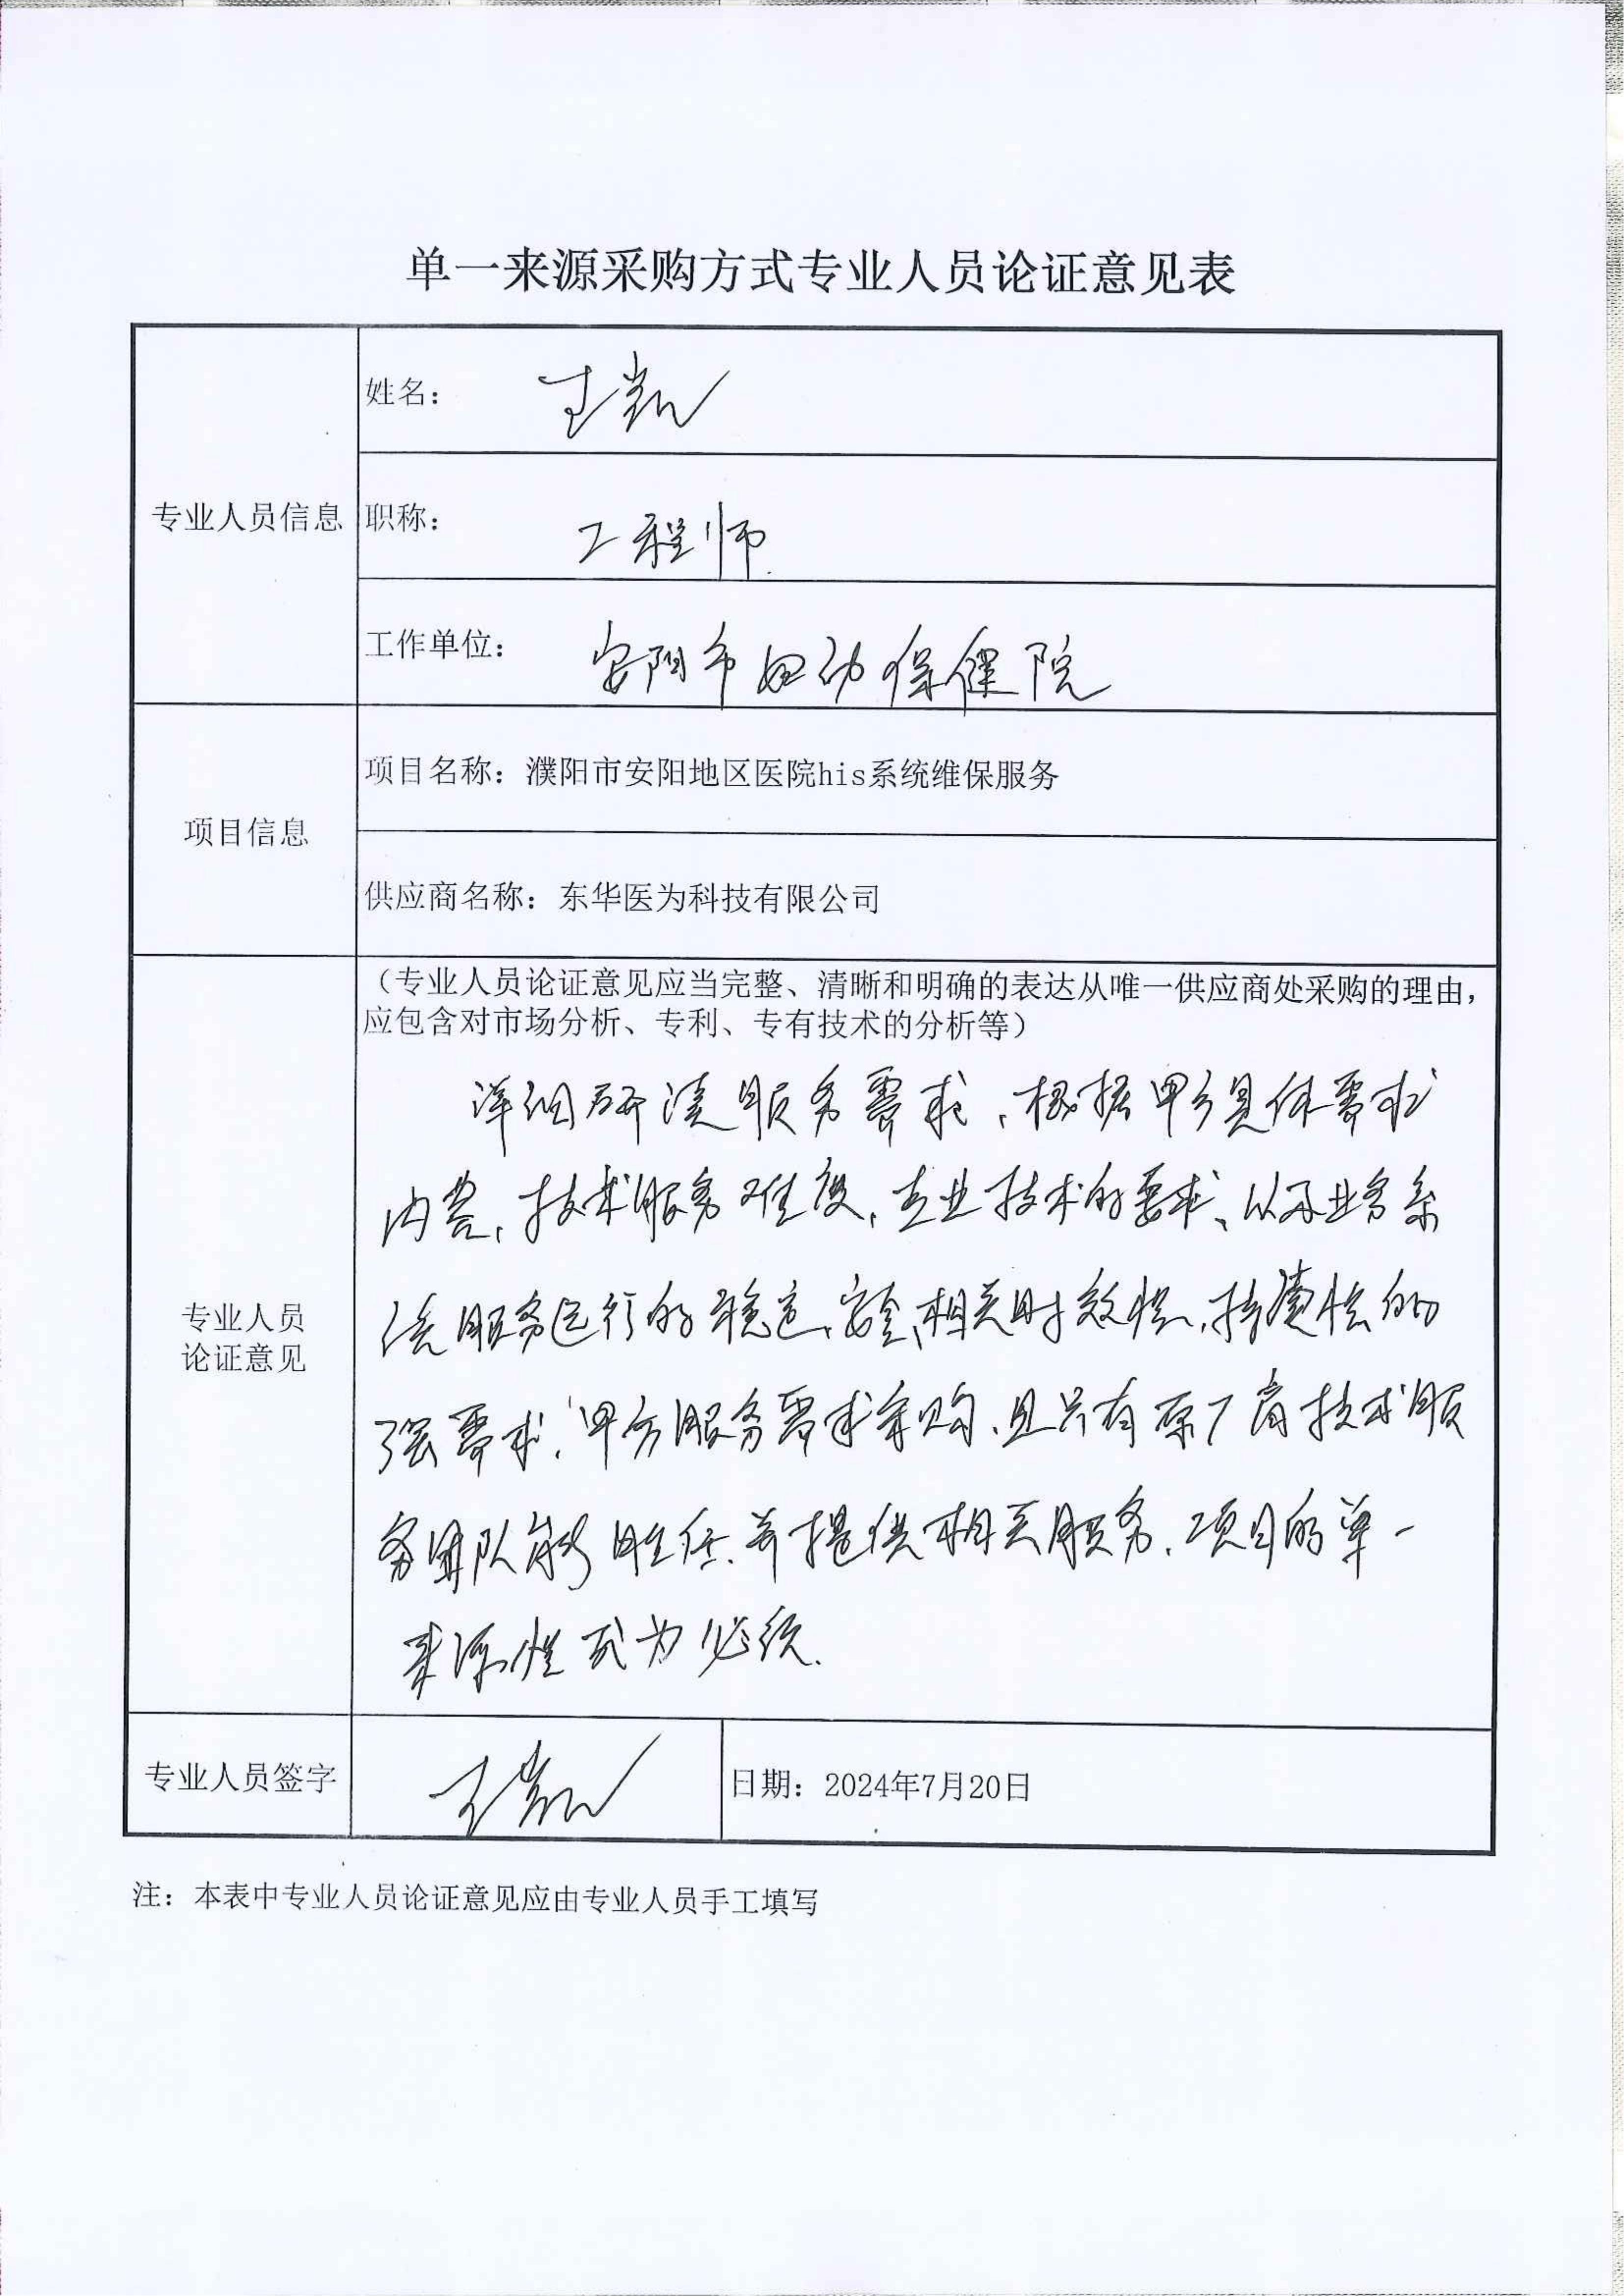 单一来源采购方式专业人员论证意见表
专业人员信息
姓名： 王凯
职称： 工程师
工作单位： 安阳市妇幼保健院
项目信息
项目名称：濮阳市安阳地区医院his系统维保服务
供应商名称：东华医为科技有限公司
专业人员
论证意见
（专业人员论证意见应当完整、清晰和明确的表达从唯一供应商处采购的理由，
应包含对市场分析、专利、专有技术的分析等）
详细研读服务需求，根据甲方具体需求
内容，技术服务难度，专业技术的要求、以及业务系
统服务运行的稳定、安全，相关时效性、持续性的
强需求，甲方服务需求采购，且只有原厂商技术服
务团队能够胜任并提供相关服务，项目的单一
来源性成为必须.
专业人员签字
王凯
日期：2024年7月20日
注：本表中专业人员论证意见应由专业人员手工填写